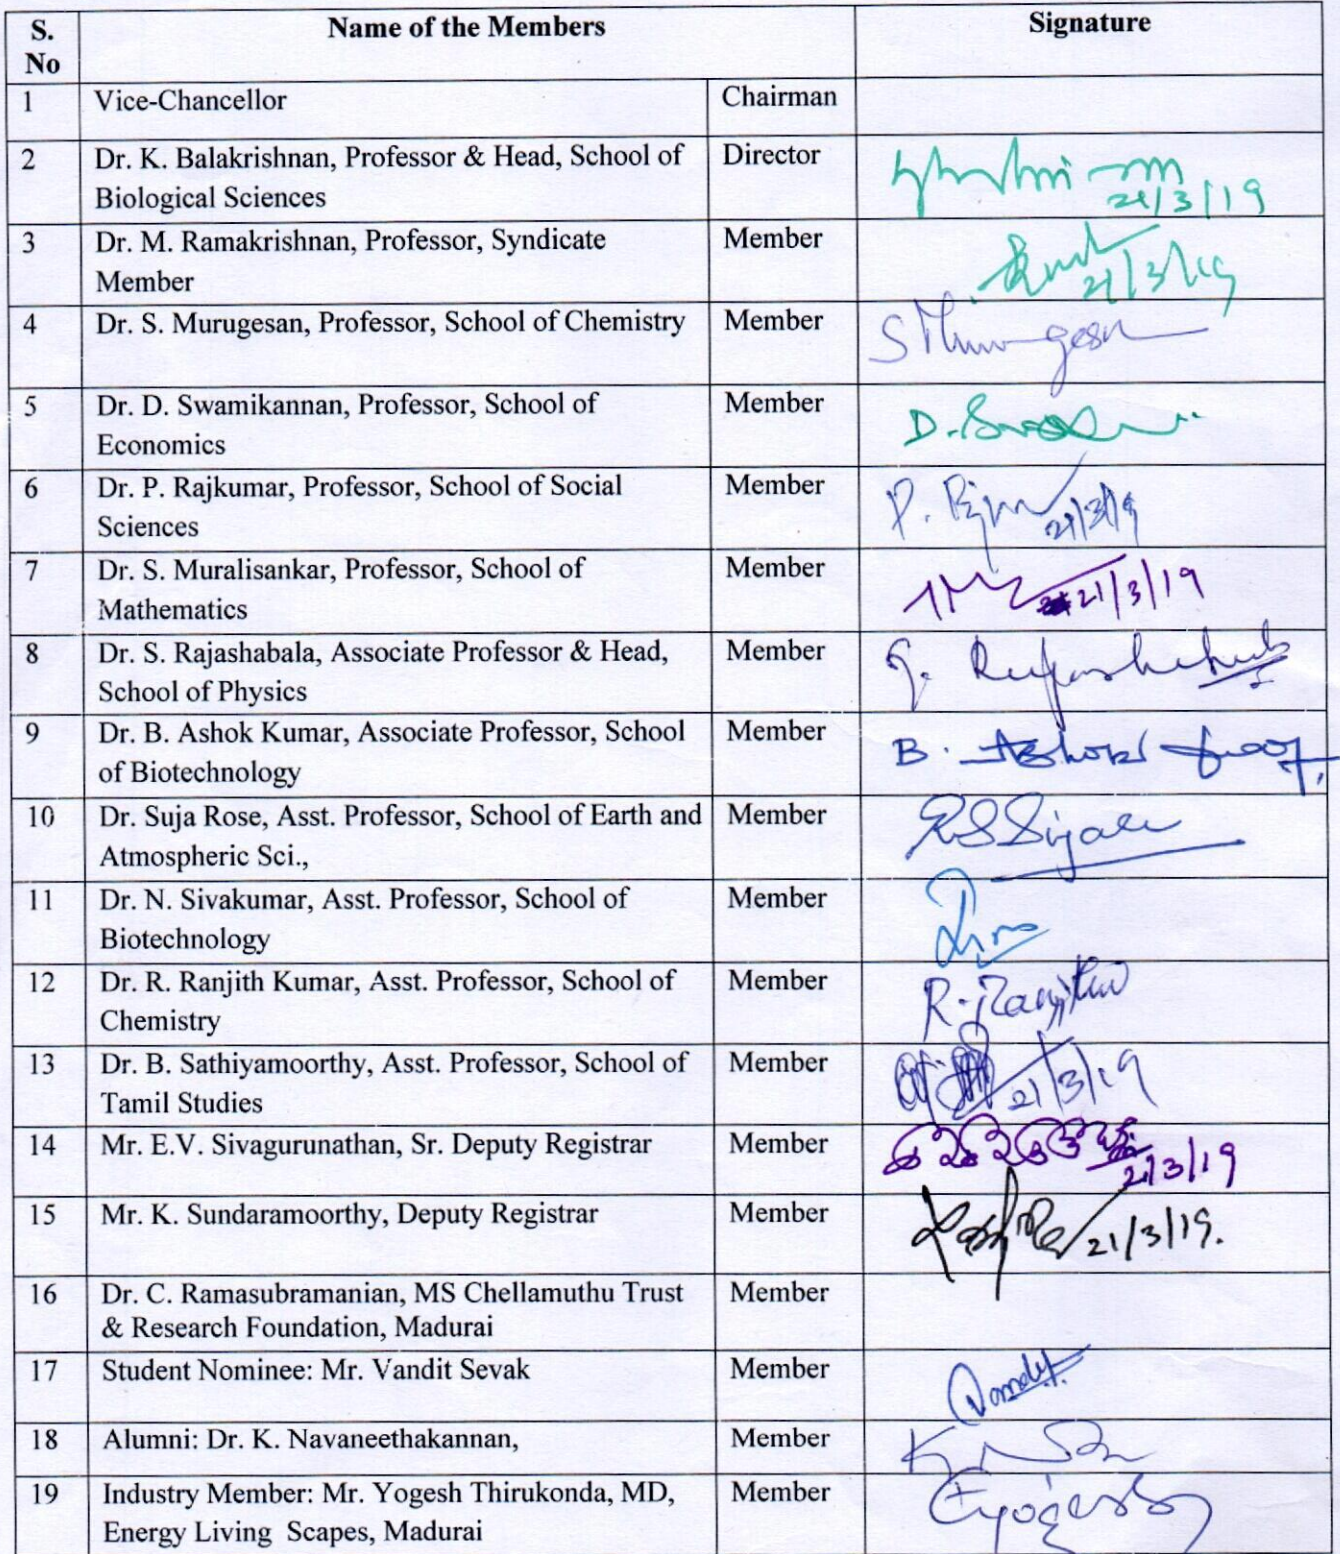 S. No Name of the Members Signature
1 Vice-Chancellor Chairman
2 Dr. K. Balakrishnan, Professor & Head, School of Director
Biological Sciences 21/3/19
3 Dr. M. Ramakrishnan, Professor, Syndicate Member
Member 21/3/19
4 Dr. S. Murugesan, Professor, School of Chemistry Member S Murugesan
5 Dr. D. Swamikannan, Professor, School of Member D.
Economics
6 Dr. P. Rajkumar, Professor, School of Social Member P.
Sciences 21/3/19
7 Dr. S. Muralisankar, Professor, School of Member 21/3/19
Mathematics
8 Dr. S. Rajashabala, Associate Professor & Head, Member
School of Physics
9 Dr. B. Ashok Kumar, Associate Professor, School Member B. Ashok
of Biotechnology
10 Dr. Suja Rose, Asst. Professor, School of Earth and Member
Atmospheric Sci.,
11 Dr. N. Sivakumar, Asst. Professor, School of Member
Biotechnology
12 Dr. R. Ranjith Kumar, Asst. Professor, School of Member R. Ranjith
Chemistry
13 Dr. B. Sathiyamoorthy, Asst. Professor, School of Member 21/3/19
Tamil Studies
14 Mr. E.V. Sivagurunathan, Sr. Deputy Registrar Member 21/3/19
15 Mr. K. Sundaramoorthy, Deputy Registrar Member 21/3/19.
16 Dr. C. Ramasubramanian, MS Chellamuthu Trust Member
& Research Foundation, Madurai
17 Student Nominee: Mr. Vandit Sevak Member Vandit
18 Alumni: Dr. K. Navaneethakannan, Member
19 Industry Member: Mr. Yogesh Thirukonda, MD, Member
Energy Living Scapes, Madurai